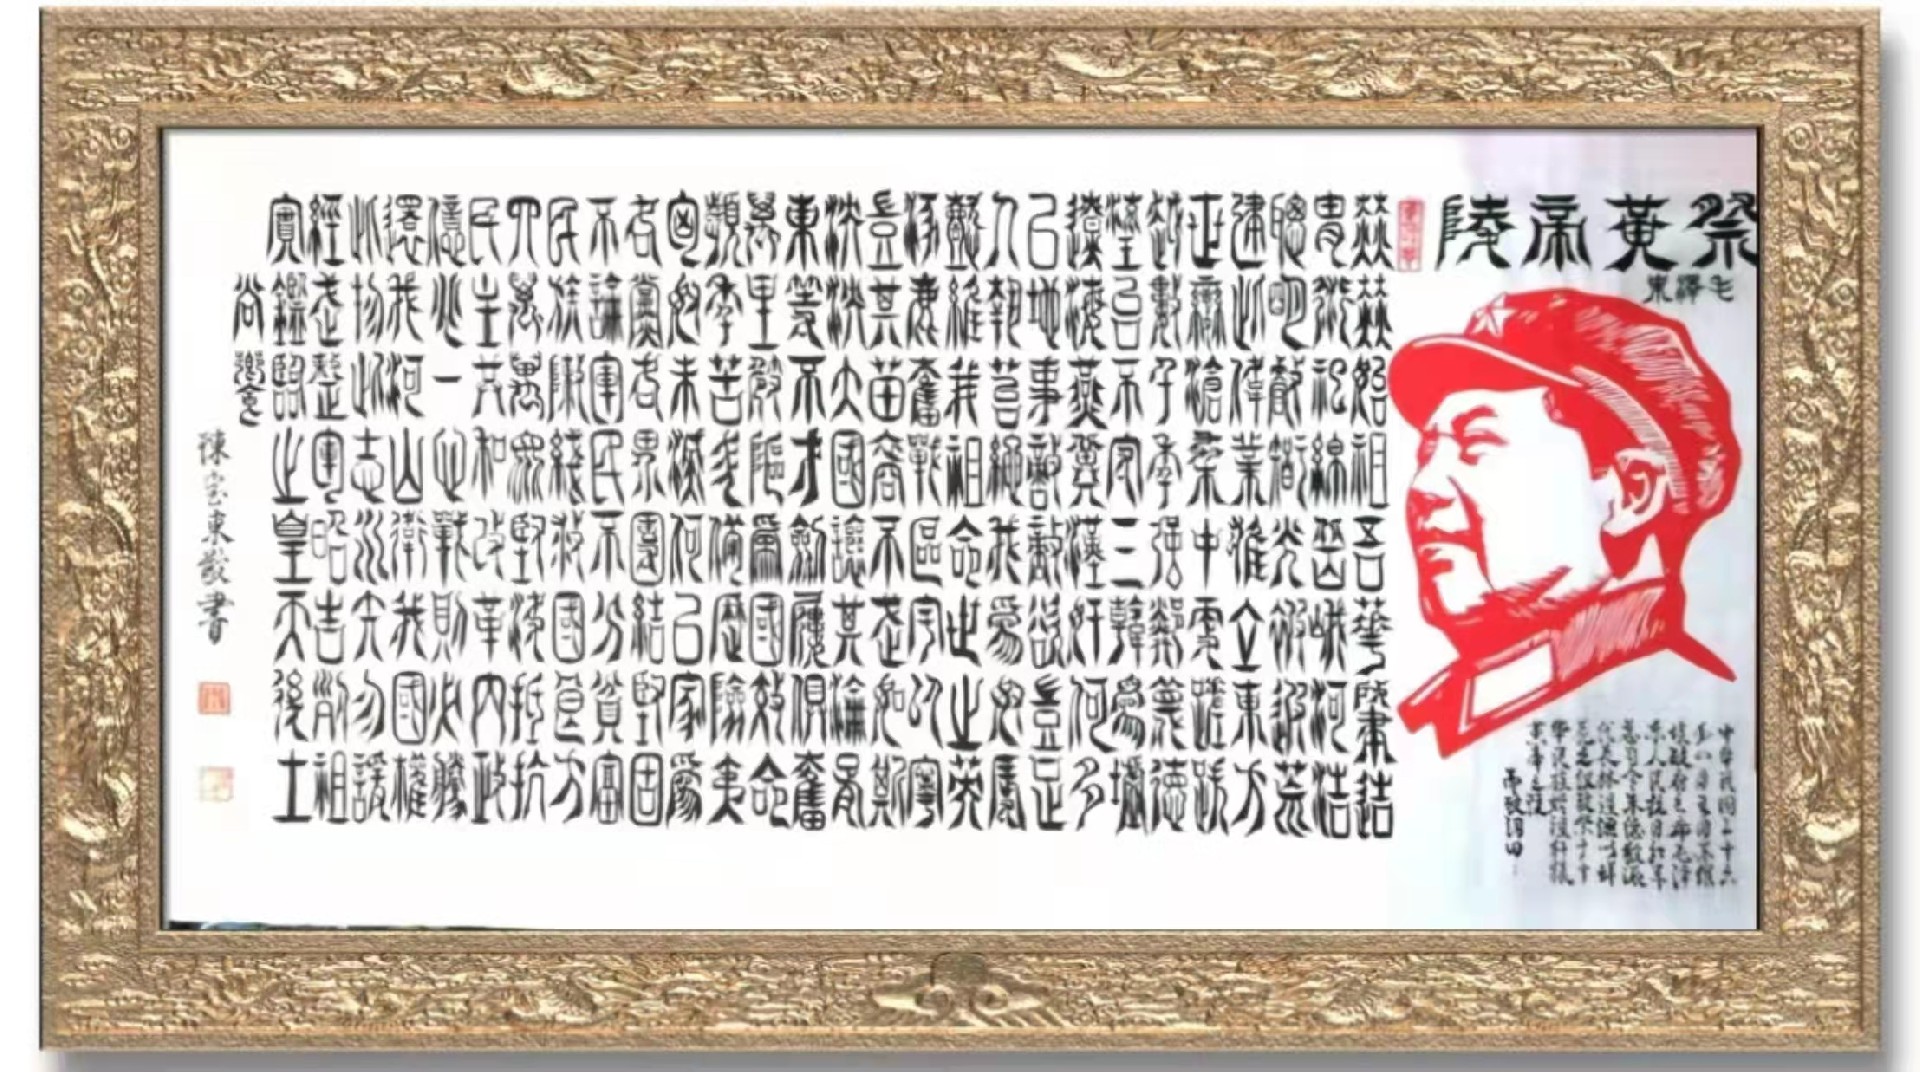 祭黃帝陵
毛澤東
中華民國二十六
年四月五日蘇維
埃政府主席毛澤
東人民抗日紅軍
總司令朱德敬派
代表林祖涵以鮮
華民族始祖軒轅
黃帝之陵
而致詞曰
赫赫始祖吾華肇造
胄衍祀綿岳峨河浩
聰明睿智光被遐荒
建此偉業雄立東方
世變滄桑中更蹉跌
越數千年強鄰蔑德
琉臺不守三韓為墟
遼海燕冀漢奸何多
以地事敵敵欲豈足
人執笞繩我為奴辱
懿維我祖命世之英
涿鹿奮戰區宇以寧
豈其苗裔不武如斯
泱泱大國讓其淪胥
東等不才劍屨俱奮
萬里崎嶇為國效命
頻年苦鬥備歷險夷
匈奴未滅何以家為
各黨各界團結堅固
不論軍民不分貧富
民族陣線救國良方
四萬萬眾堅決抵抗
民主共和改革內政
億兆一心戰則必勝
還我河山衛我國權
此物此志永矢勿諼
經武整軍昭告列祖
實鑒臨之皇天後土
尚饗
陳宝東敬書